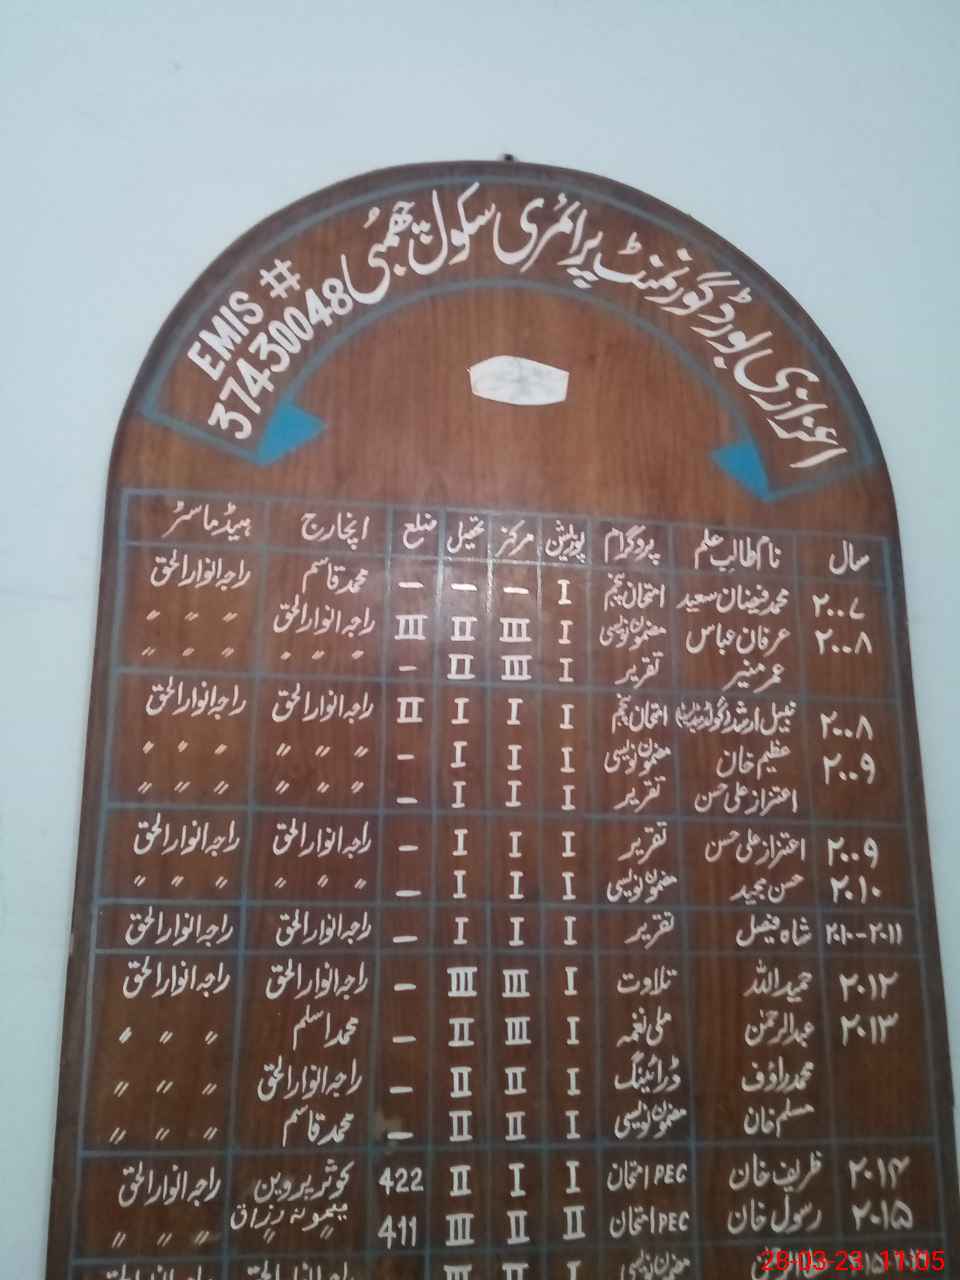 اعزازی بورڈ گورنمنٹ پرائمری سکول چھمبی
EMIS #
37430048
سال نام طالب علم پروگرام پوزیشن مرکز تحصیل ضلع انچارج ہیڈ ماسٹر
۲۰۰۷ محمد فیضان سعید امتحان پنجم I – – – محمد قاسم راجہ انوار الحق
۲۰۰۸ عرفان عباس مضمون نویسی I III II III راجہ انوار الحق " " "
عمر منیر تقریر I III II – " " " " " "
۲۰۰۸ نبیل ارشد امتحان پنجم I I I II راجہ انوار الحق راجہ انوار الحق
۲۰۰۹ عظیم خان مضمون نویسی I I I – " " " " " "
اعتزاز علی حسن تقریر I I I – " " " " " "
۲۰۰۹ اعتزاز علی حسن تقریر I I I – راجہ انوار الحق راجہ انوار الحق
۲۰۱۰ حسن مجید مضمون نویسی I I I – " " " " " "
۲۰۱۰-۲۰۱۱ شاہ فیصل تقریر I I I – راجہ انوار الحق راجہ انوار الحق
۲۰۱۲ حمید اللہ تلاوت I III III – راجہ انوار الحق راجہ انوار الحق
۲۰۱۳ عبدالرحمٰن ملی نغمہ I III II – محمد اسلم " " "
محمد راؤف ڈرائینگ I II II – راجہ انوار الحق " " "
مسلم خان مضمون نویسی I II II – محمد قاسم " " "
۲۰۱۴ ظریف خان PEC امتحان I I II 422 کوثر پروین راجہ انوار الحق
۲۰۱۵ رسول خان PEC امتحان II II III 411 میمونہ رزاق " " "
مضمون نویسی I II III راجہ انوار الحق راجہ انوار الحق
28-03-23 11:05